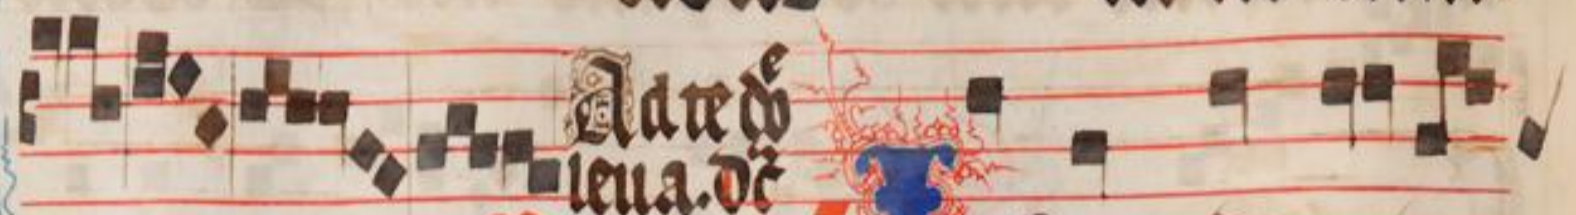 Ad te dõe
leua. dc̃